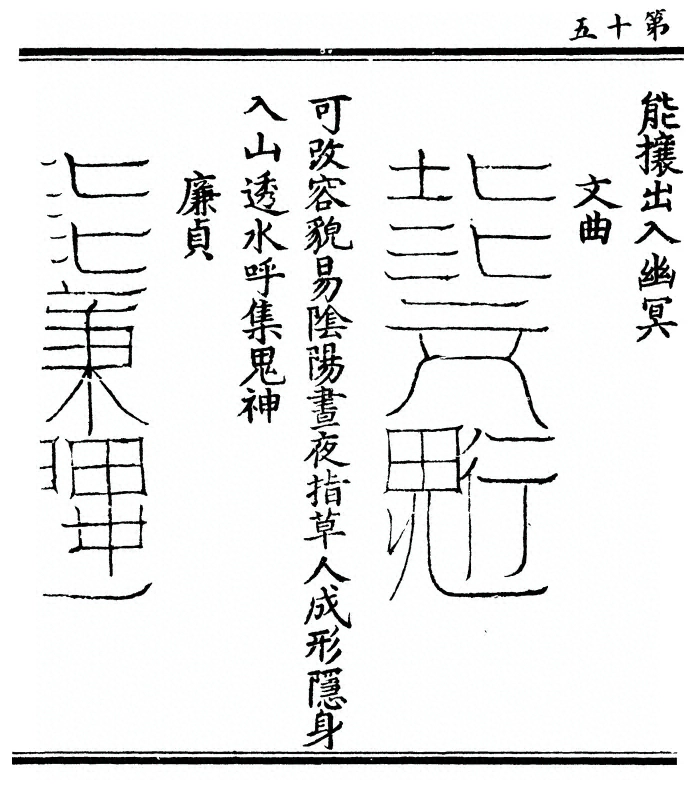 第十五
能攘出入幽冥
文曲
可改容貌易陰陽晝夜指草人成形隱身
入山透水呼集鬼神
廉貞